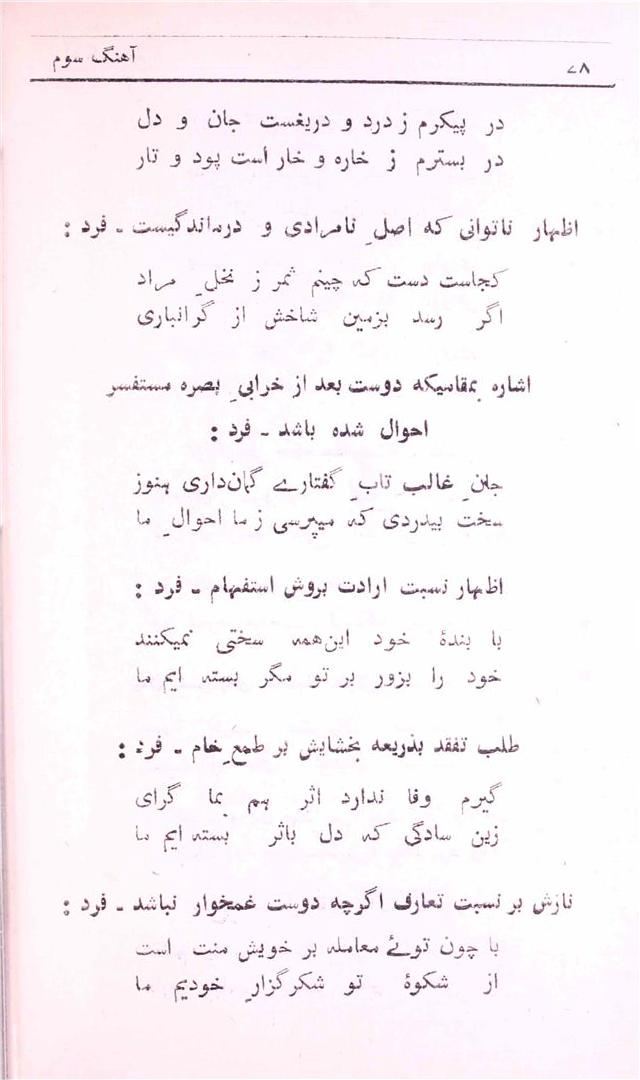 ۷۸ آهنگ سوم
در پیکرم ز درد و دریغست جان و دل
در بسترم ز خاره و خار است پود و تار
اظهار ناتوانی که اصلِ نامرادی و درماندگیست ـ فرد :
کجاست دست که چینم ثمر ز نخلِ مراد
اگر رسد بزمین شاخش از گرانباری
اشاره بمقامیکه دوست بعد از خرابیِ بصره مستفسر
احوال شده باشد ـ فرد :
جانِ غالب تابِ گفتارے گمان‌داری هنوز
سخت بیدردی که میپرسی ز ما احوالِ ما
اظهار نسبت ارادت بروش استفهام ـ فرد :
با بندهٔ خود این‌همه سختی نمیکنند
خود را بزور بر تو مگر بسته ایم ما
طلب تفقد بذریعه بخشایش بر طمعِ خام ـ فرد :
گیرم وفا ندارد اثر هم بما گرای
زین سادگی که دل باثر بسته ایم ما
نازش بر نسبت تعارف اگرچه دوست غمخوار نباشد ـ فرد :
با چون توئے معامله بر خویش منت است
از شکوهٔ تو شکرگزارِ خودیم ما